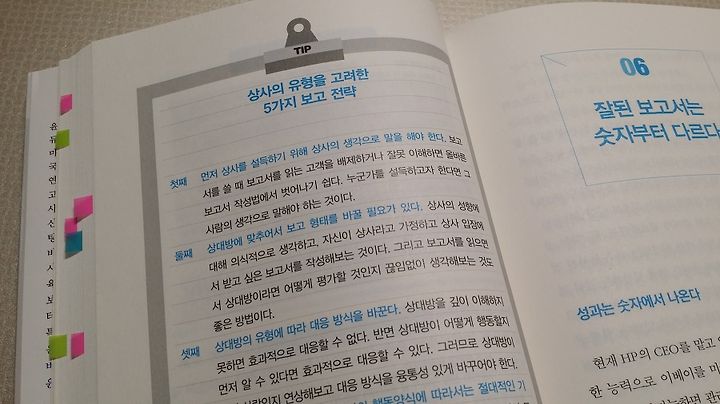 TIP
상사의 유형을 고려한
5가지 보고 전략
첫째 먼저 상사를 설득하기 위해 상사의 생각으로 말을 해야 한다. 보고
서를 쓸 때 보고서를 읽는 고객을 배제하거나 잘못 이해하면 올바른
보고서 작성법에서 벗어나기 쉽다. 누군가를 설득하고자 한다면 그
사람의 생각으로 말해야 하는 것이다.
둘째 상대방에 맞추어서 보고 형태를 바꿀 필요가 있다. 상사의 성향에
대해 의식적으로 생각하고, 자신이 상사라고 가정하고 상사 입장에
서 받고 싶은 보고서를 작성해보는 것이다. 그리고 보고서를 읽으면
서 상대방이라면 어떻게 평가할 것인지 끊임없이 생각해보는 것도
좋은 방법이다.
셋째 상대방의 유형에 따라 대응 방식을 바꾼다. 상대방을 깊이 이해하지
못하면 효과적으로 대응할 수 없다. 반면 상대방이 어떻게 행동할지
먼저 알 수 있다면 효과적으로 대응할 수 있다. 그러므로 상대방이
사람인지 연상해보고 대응 방식을 융통성 있게 바꾸어야 한다.
행동양식에 따라서는 절대적인 기
06
잘된 보고서는
숫자부터 다르다
성과는 숫자에서 나온다
현재 HP의 CEO를 맡고
한 능력으로 이베이를